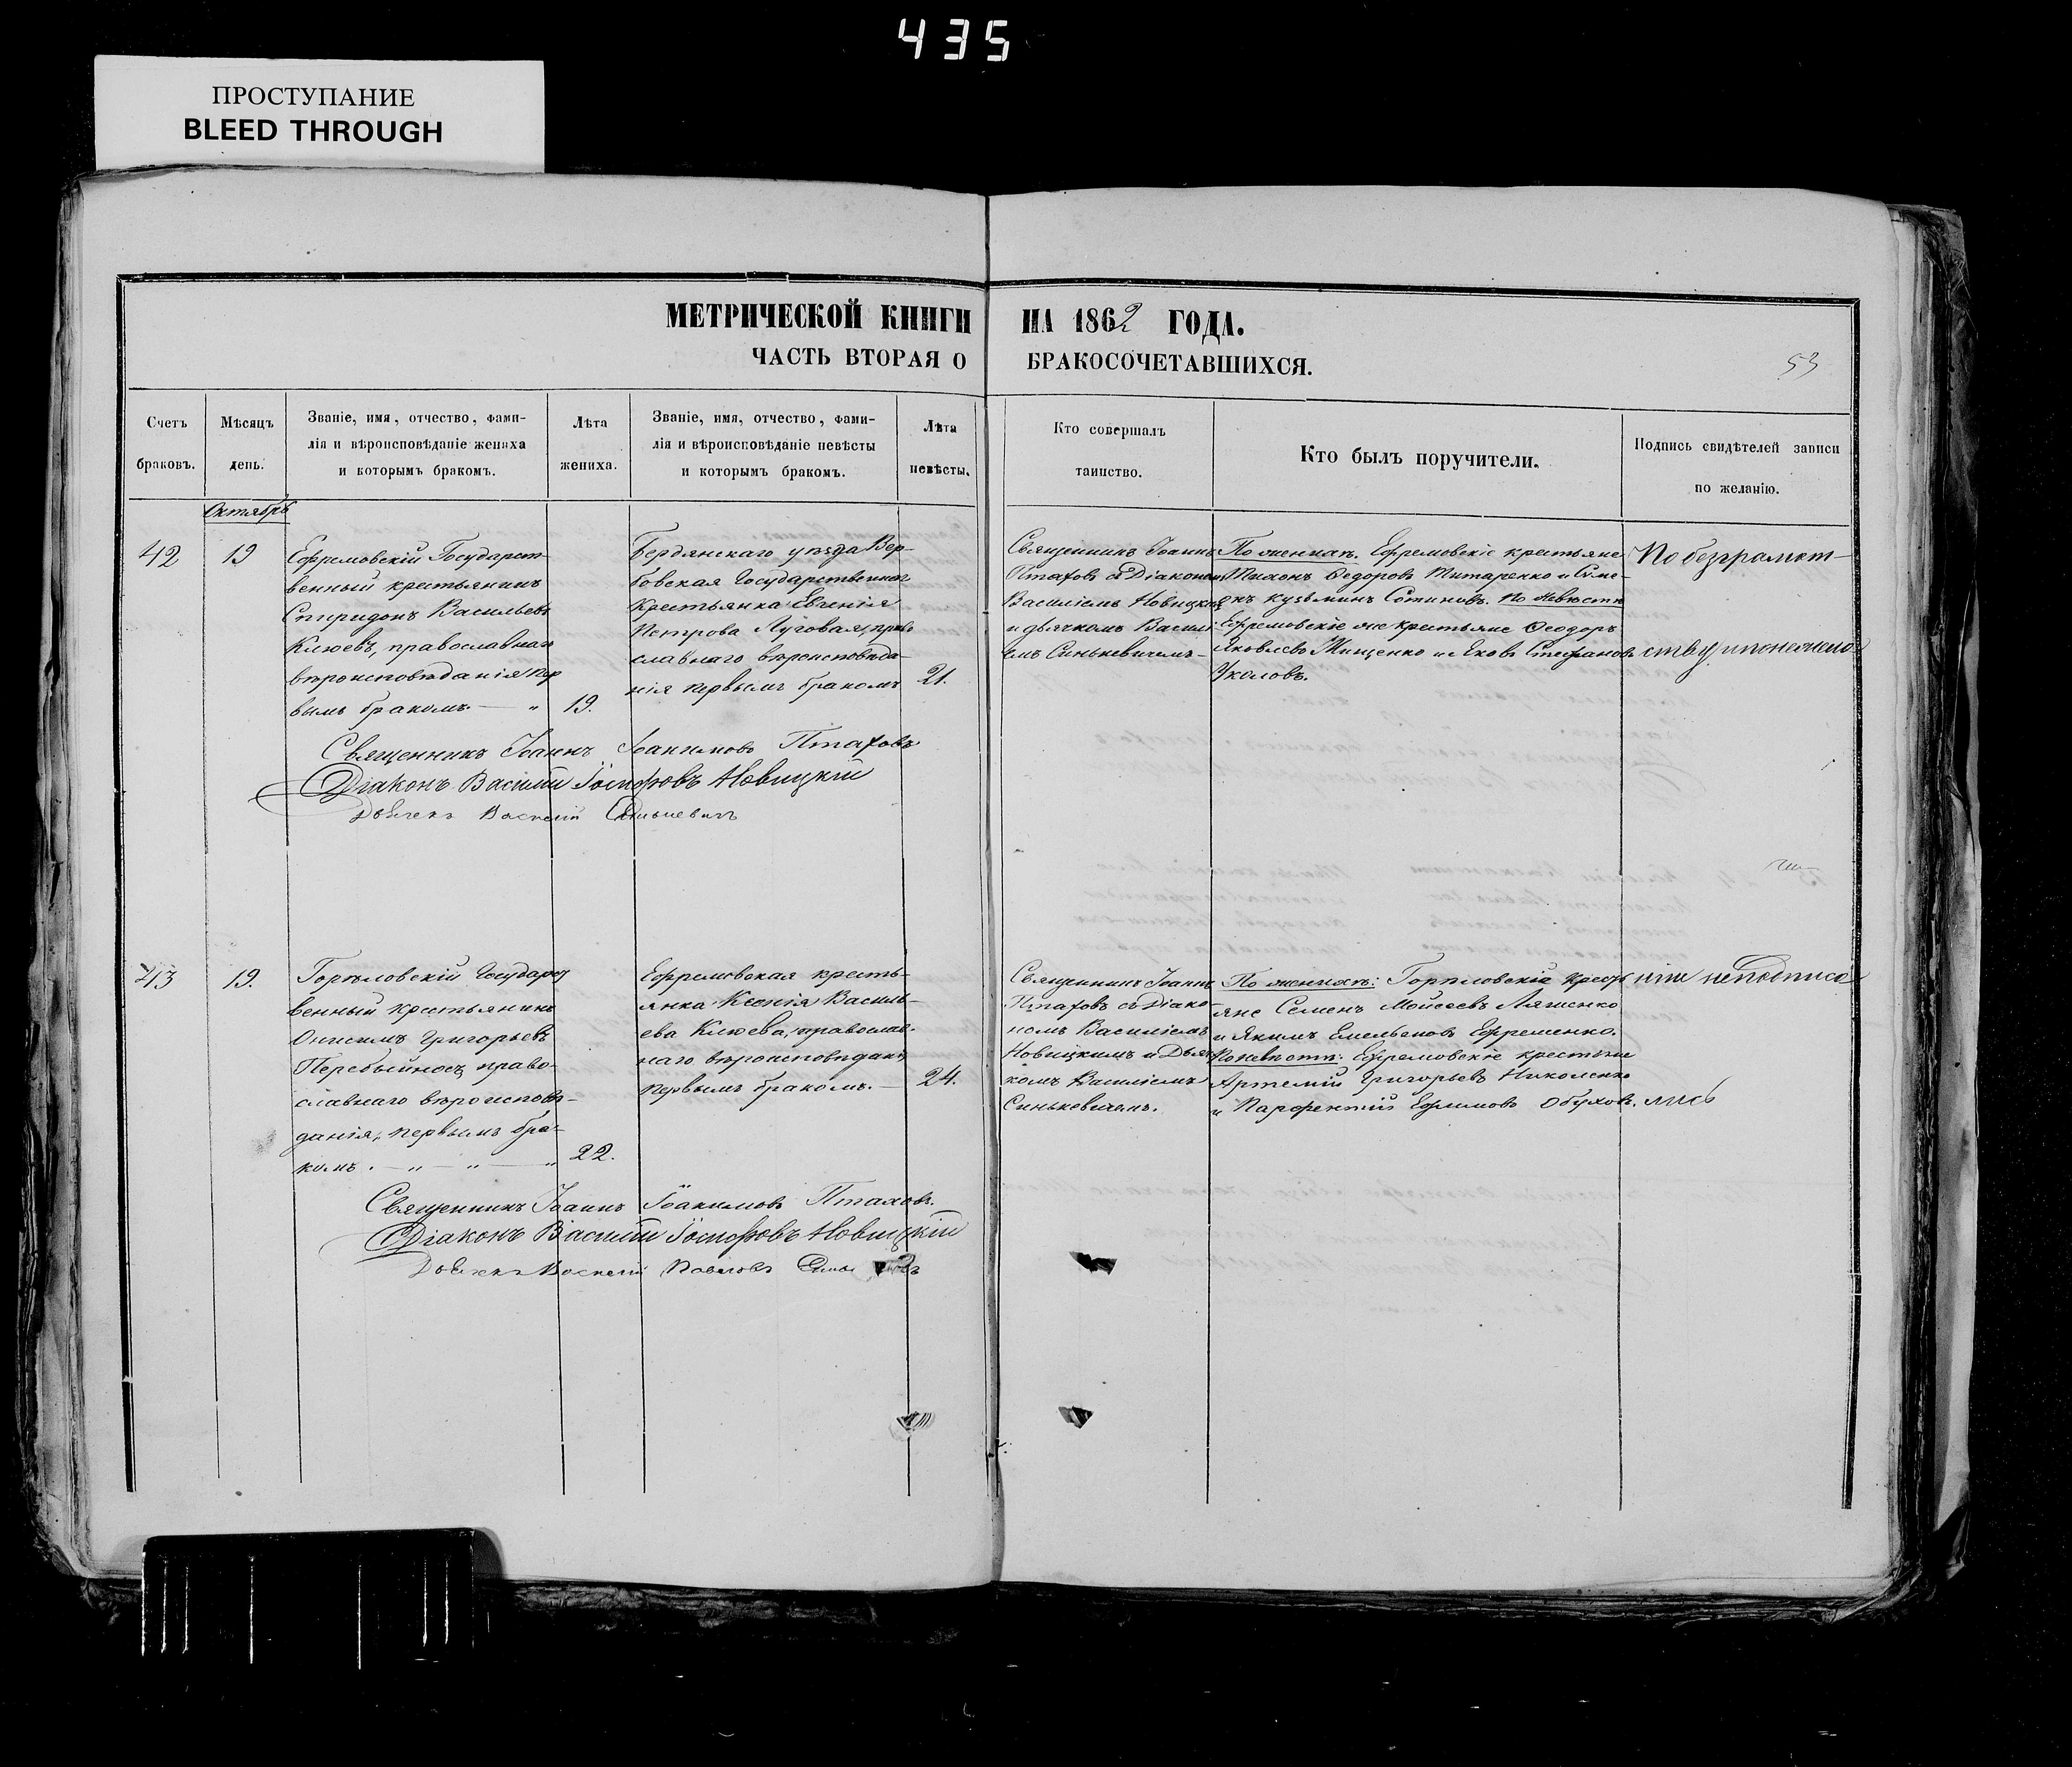 435
ПРОСТУПАНИЕ
BLEED THROUGH
МЕТРИЧЕСКОЙ КНИГИ НА 1862 ГОДА.
ЧАСТЬ ВТОРАЯ О БРАКОСОЧЕТАВШИХСЯ.
53
Счетъ
браковъ.
Мѣсяцъ
день.
Званіе, имя, отчество, фами-
лія и вѣроисповѣданіе жениха
и которымъ бракомъ.
Лѣта
жениха.
Званіе, имя, отчество, фами-
лія и вѣроисповѣданіе невѣсты
и которымъ бракомъ.
Лѣта
невѣсты.
Кто совершалъ
таинство.
Кто былъ поручители.
Подпись свидѣтелей записи
по желанію.
Октябрь
42
19
Ефремовскій Государст-
венный крестьянинъ
Спиридонъ Васильевъ
Клюевъ, православнаго
вѣроисповѣданія пер
вымъ бракомъ. — "
19.
Бердянскаго уѣзда Вер-
бовская Государственная
Крестьянка Евгенія
Петрова Луговая, право
славнаго вѣроисповѣда-
нія первымъ бракомъ
21.
Священникъ Іоаннъ
Птаховъ съ Діакономъ
Василіемъ Новицкимъ
и дьячкомъ Васил
емъ Синькевичемъ -
По женихѣ. Ефремовскіе крестьяне
Тихонъ Ѳедоровъ Титаренко и Симе-
онъ Кузьминъ Сотниковъ. По невѣстѣ
Ефремовскіе же крестьяне Ѳеодоръ
Яковлевъ Тищенко и Яковъ Стефановъ
Уколовъ.
По безграмот-
ству и понежела
Священникъ Іоаннъ Іоакимовъ Птаховъ
Діаконъ Василій Іосифовъ Новицкій
Дьячекъ Василій Синькевичъ
43
19.
Горѣловскій Государст
венный крестьянинъ
Онисимъ Григорьевъ
Перебыйносъ право-
славнаго вѣроисповѣ-
данія, первымъ бра-
комъ. — " — " — "
22.
Ефремовская кресть-
янка Ксенія Василь-
ева Клюева, православ-
наго вѣроисповѣданія
первымъ бракомъ. —
24.
Священникъ Іоаннъ
Птаховъ съ Діако-
номъ Василіемъ
Новицкимъ и Дьяч
комъ Василіемъ
Синькевичемъ.
По женихѣ: Горѣловскіе Кресть
яне Семенъ Моисеевъ Ляшенко
и Якимъ Емельяновъ Ефременко.
По невѣстѣ: Ефремовскіе крестьяне
Артемій Григорьевъ Николенко
и Парфентій Ефимовъ Обуховъ.
нію неподписа
лись
Священникъ Іоаннъ Іоакимовъ Птаховъ.
Діаконъ Василій Іосифовъ Новицкій
Дьячекъ Василій Павловъ